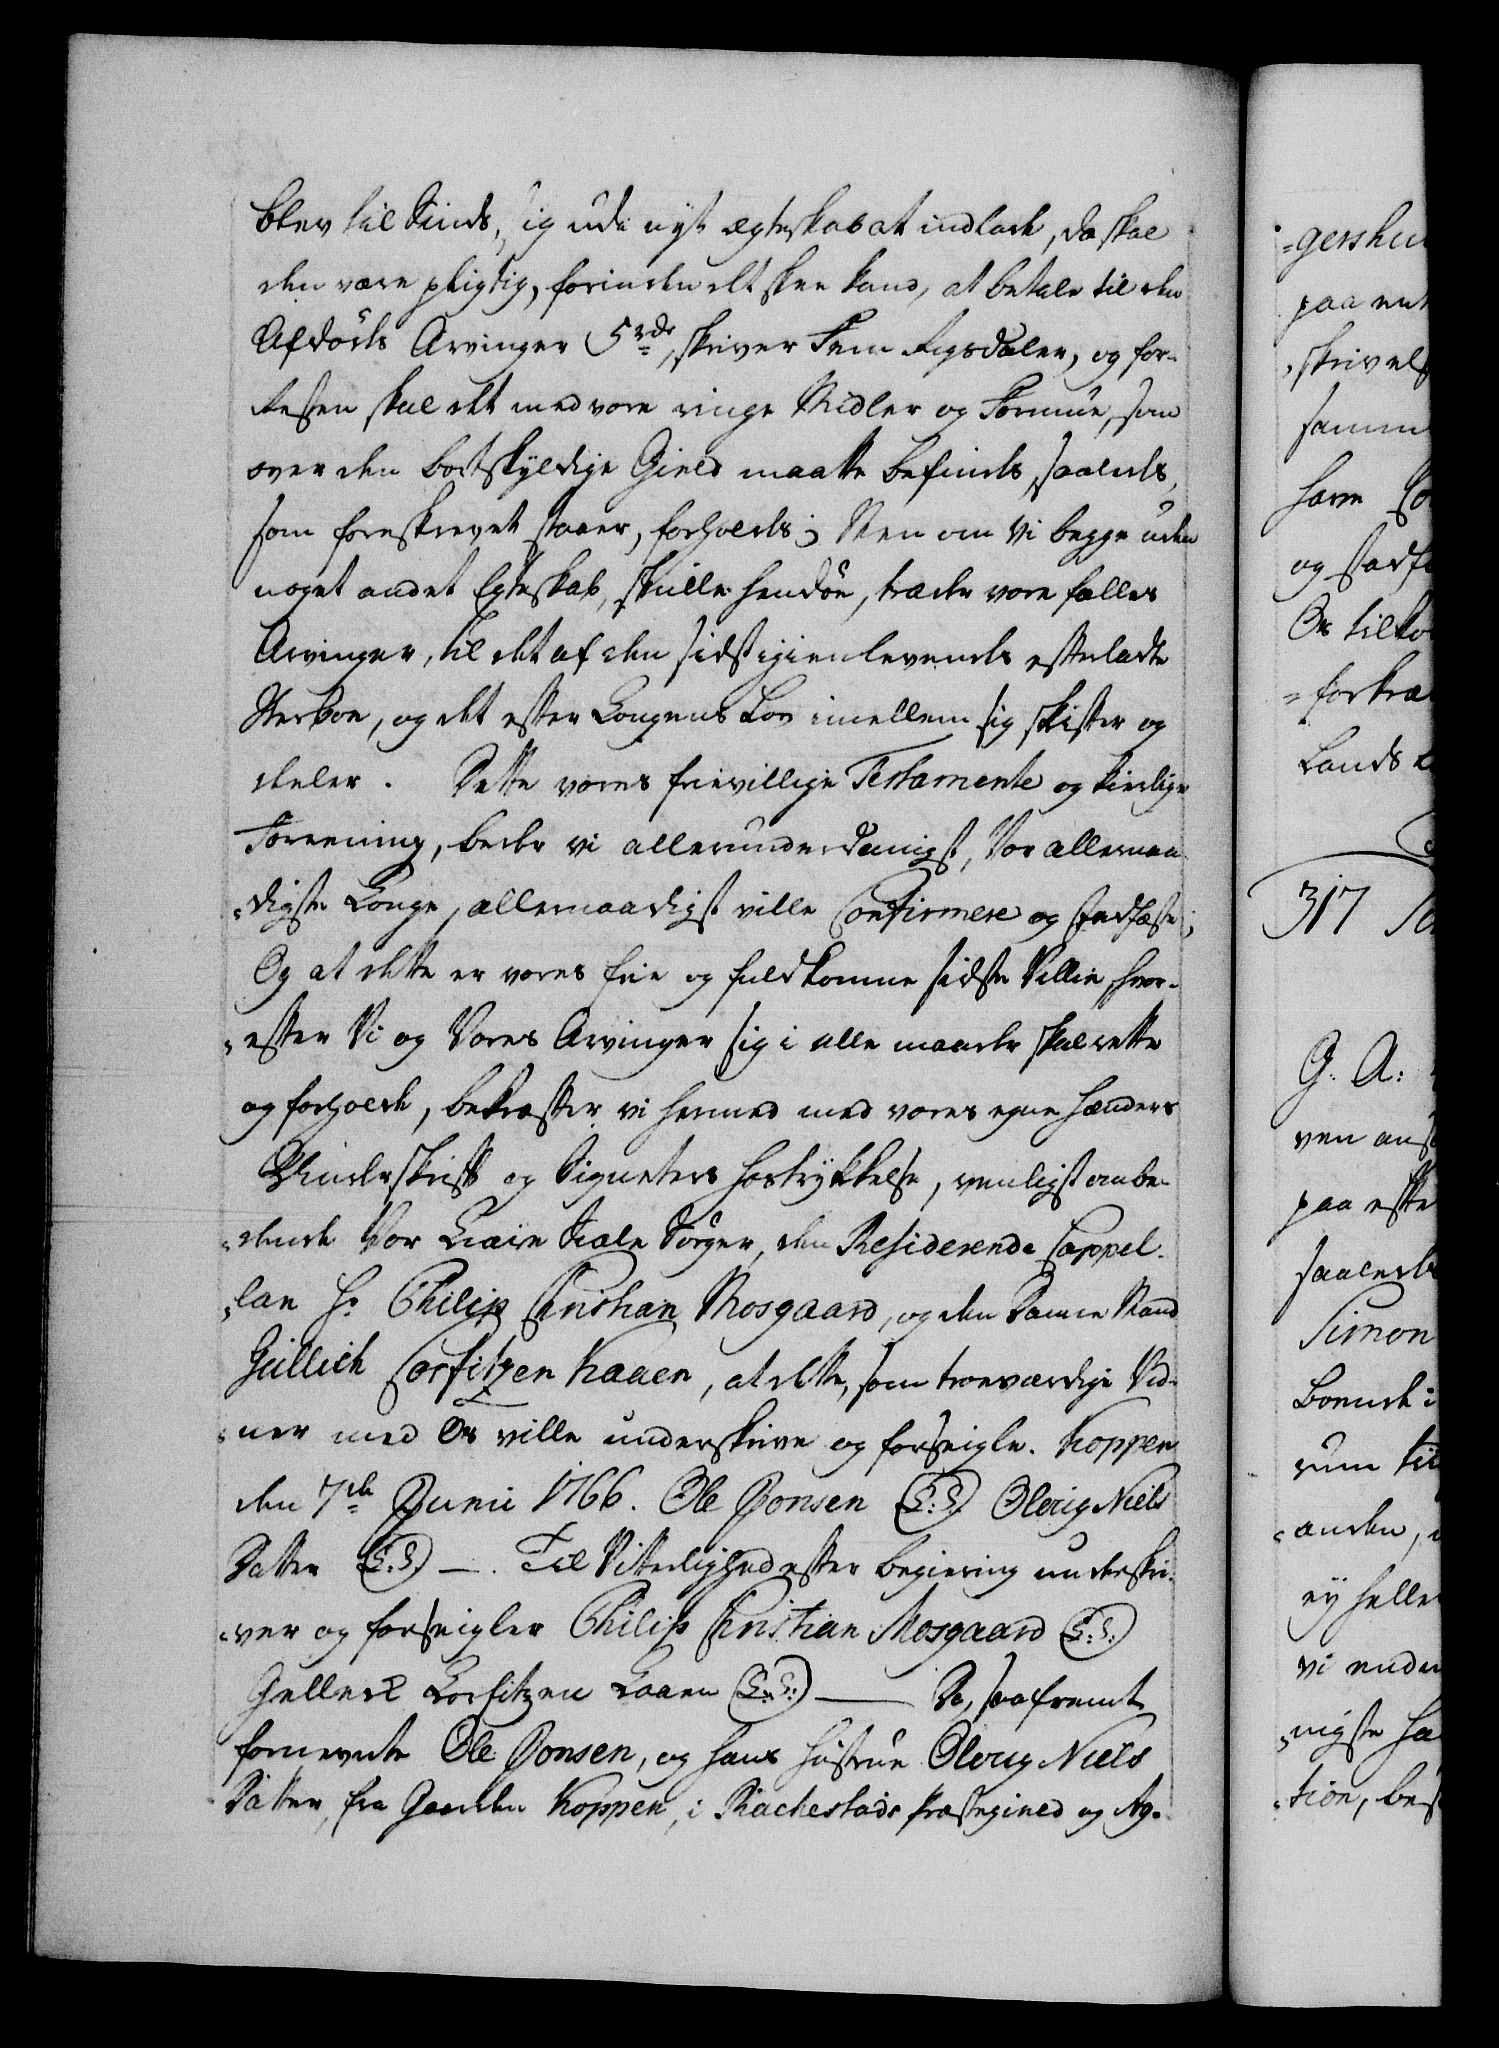 blev til Sinds, sig udi nyt ægteskab at indlade, da skal
den være pligtig, forinden det skee kand, at betale til den
Afdødes Arvinger 5 rdr, skriver Fem Rigsdaler, og for-
Resten skal det med vore ringe Midler og Formue, som
over den bortskyldige Gield maatte befindes, saaledes,
som foreskrevet staaer, forholdes; Men om Vi begge uden
noget andet Egteskab, skulle hendøe, træde vore fælles
Arvinger, til det af den sidst igienlevendes efterladte
Sterboe, og det efter Longens Lov imellem sig skifter og
deeler. Dette vores frievillige Testamente og kierlige
Foreening, beder vi allerunderdanigst, Vor allernaa-
digste Konge, allernaadigst ville Confirmere og stadfæste;
Og at dette er vores frie og fuldkomne sidste Villie hvor-
efter Vi og Vores Arvinger sig i alle maader skal rette
og forholde, bekræfter vi hermed med vores egne hænders
Underskrift og Signeters hostrykkelse, venligst ombe-
dende Vor Kiære Siæle Sørger, den Residerende Cappel-
lan Hr. Philip Christian Mosgaard, og den Danne Mand
Gullich Corfitzen Kaaen, at dette, som troeværdige Vid-
ner med Os ville underskrive og forseigle. Koppen
den 7de Junii 1766. Ole Jonsen (L:S.) Oleug Niels
Datter (L:S.) —. Til Vitterlighed efter begiering underskri-
ver og forseigler Philip Christian Mosgaard (L:S:)
Gellert Corfitzen Kaaen (L:S:) — Da, saafremt
fornevnte Ole Jonsen, og hans Hustrue Oleug Niels
Datter, fra Gaarden Koppen, i Rachestads Præstegield og Ag-
-gershu
paa
skrivels
samm
have
og stadf
Os tilko
-forkræ
Lands
317
G. A:
ven
paa efte
saalede
Simon
Boende i
rum
-anden,
ey helle
vi
-nigste ha
-tion, bes